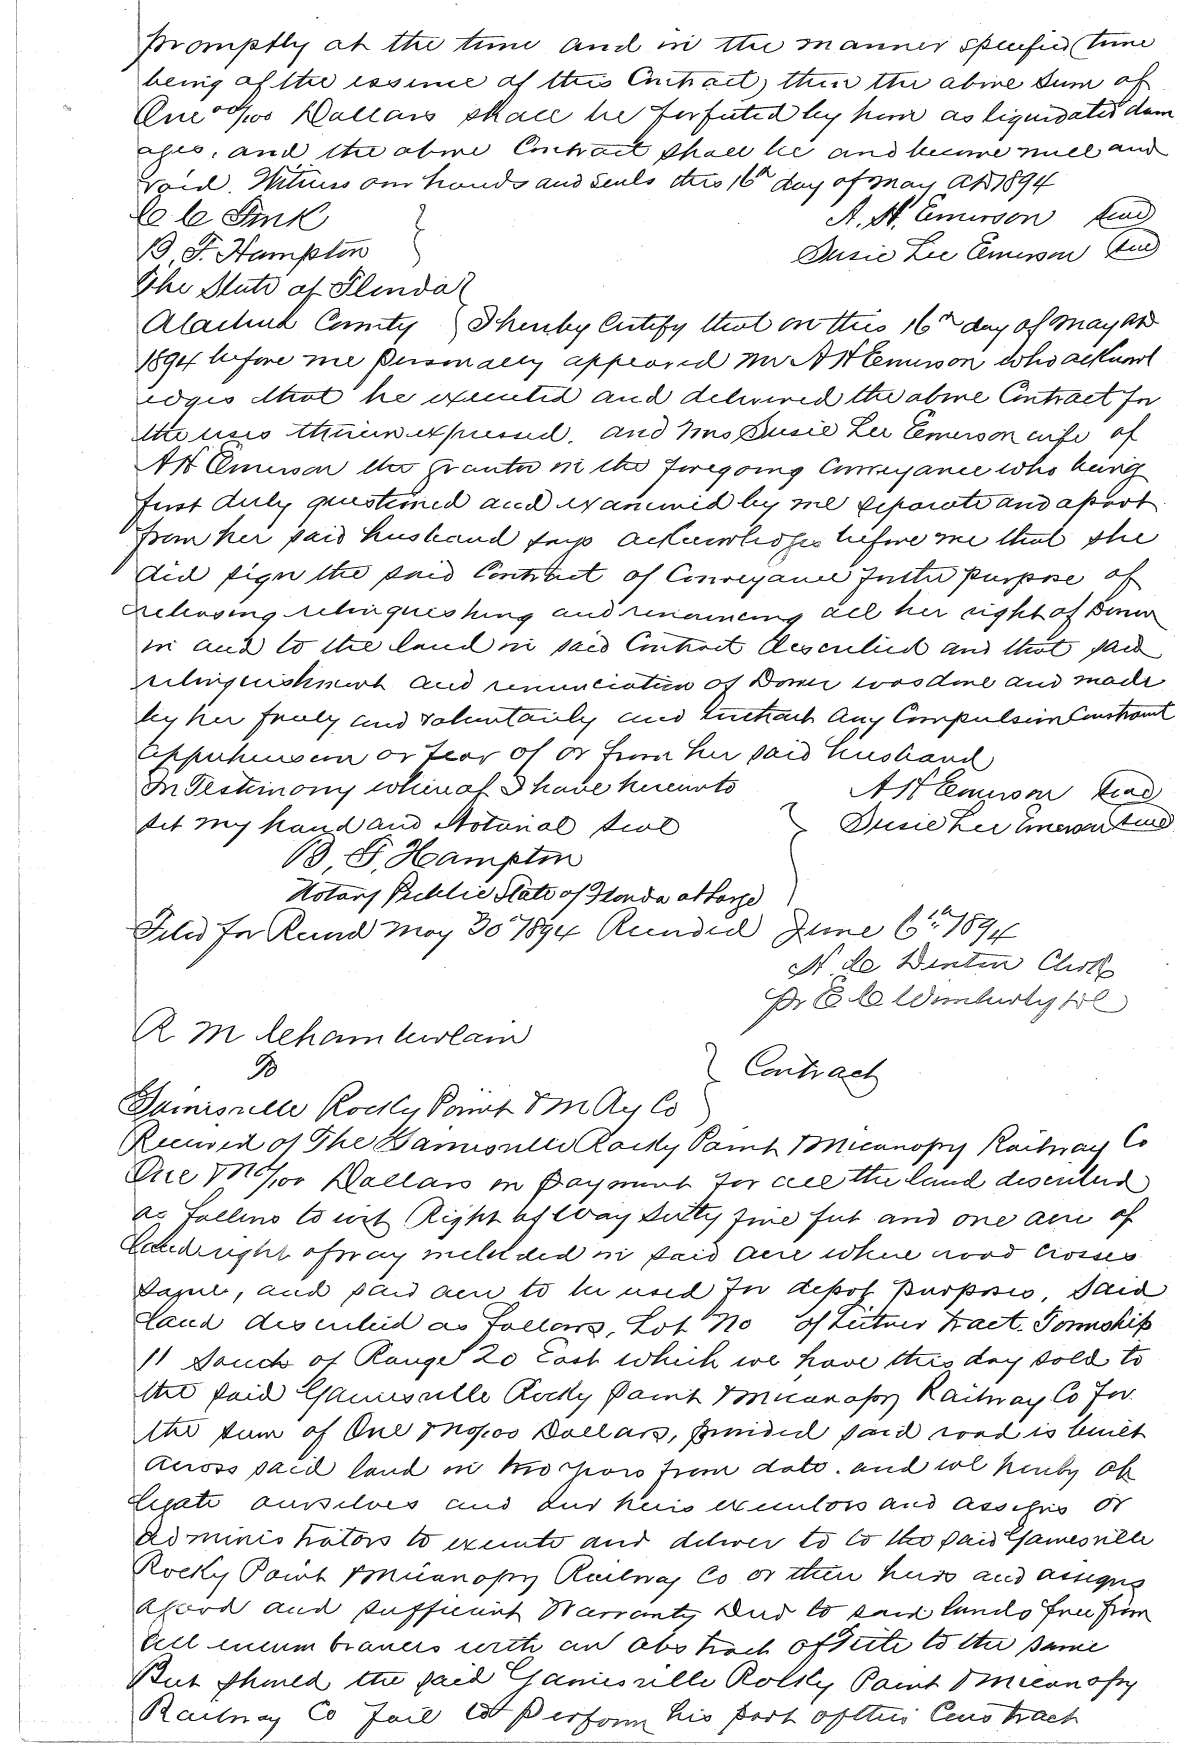 promptly at the time and in the manner specified (time
being of the essence of this Contract) then the above Sum of
One 00/100 Dollars shall be forfeited by him as liquidated dam
ages, and the above Contract shall be and become null and
void. Witness our hands and seals this 16th day of May AD 1894
C C Fink } A. H. Emerson Seal
B. F. Hampton Susie Lee Emerson Seal
The State of Florida }
Alachua County } I hereby Certify that on this 16th day of May AD
1894 before me personally appeared Mr A H Emerson who acknowl
edges that he executed and delivered the above Contract for
the uses therein expressed. and Mrs Susie Lee Emerson wife of
A H Emerson the grantor in the foregoing Conveyance who being
first duly questioned and examined by me separate and apart
from her said husband says acknowledges before me that she
did sign the said Contract of Conveyance for the purpose of
releasing relinquishing and renouncing all her right of Dower
in and to the land in said Contract described and that said
relinquishment and renunciation of Dower was done and made
by her freely and voluntarily and without any Compulsion Constraint
apprehension or fear of or from her said husband
In Testimony whereof I have hereunto A H Emerson Seal
set my hand and Notarial Seal } Susie Lee Emerson Seal
B, F, Hampton
Notary Public State of Florida at Large
Filed for Record May 30th 1894 Recorded June 6th 1894
H C Denton Clerk
pr E C Wimberly D C
R M Chamberlain
To } Contract
Gainesville Rocky Point & M Ry Co
Received of The Gainesville Rocky Point & Micanopy Railway Co
One & no/100 Dollars in payment for all the land described
as follows to wit Right of Way Sixty five feet and one acre of
Land right of way included in said acre where road crosses
same, and said acre to be used for depot purposes, Said
Land described as follows, Lot No of Leitner tract. Township
11 South of Range 20 East which we have this day sold to
the said Gainesville Rocky Point & Micanopy Railway Co for
the sum of One & no/100 Dollars, provided said road is built
across said land in two years from date. and we hereby ob
ligate ourselves and our heirs executors and assigns or
administrators to execute and deliver to to the said Gainesville
Rocky Point & Micanopy Railway Co or their heirs and assigns
a good and sufficient Warranty Deed to said lands free from
all encumbrances with an abstract of Title to the same
But should the said Gainesville Rocky Point & Micanopy
Railway Co fail to perform his part of this Contract